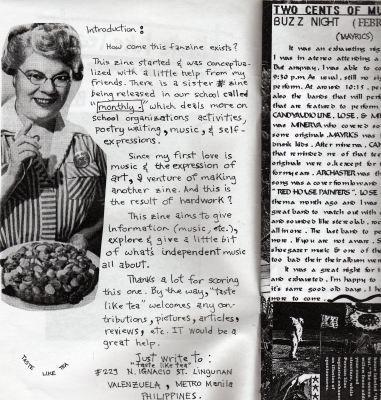 Introduction:
How come this fanzine exists?
This zine started & was conceptua-
lized with a little help from my
friends. There is a sister # zine
being published in our school called
"monthly J" which deals more on
school organizations activities,
poetry writing, music, & self-
expressions.
Since my first love is
music & the expression of
art, & venture of making
another zine. And this is
the result of hardwork?
This zine aims to give
Information (music, etc.),
explore & give a little bit
of what's independent music
all about.
Thanks a lot for scoring
this one. By the way, "taste
like tea" welcomes any con-
tributions, pictures, articles,
reviews, etc. IT would be a
great help.
Just write to:
"taste like tea"
#223 N. IGNACIO ST. LINGUNAN
VALENZUELA, METRO Manila
PHILIPPINES.
TASTE LIKE TEA
TWO CENTS OF MU
BUZZ NIGHT (FEB
(MAYRICS)
It was an exhausting nig
I was in stereo attending a
But anyway, I was able to co
9:30 p.m. As usual, still no si
perform. At around 10:15, pe
also the bands that will perf
that are featured to perform
CANDYAUDIO LINE, LOSE, & M
was MINERVA who covered so
some original. MAYRICS was
drunk kids. After minerva, CAN
that reminded me of that tee
originals were o.k. except for t
for my ears. ARCHASTER was th
song was a cover from lowand
"RED HOUSE PAINTERS". LOSE
them a month ago and I was
great band to watch out with
and sounded like stereolab, ro
all in one. The last band to pe
more. If you are not aware, S
shoegazer music & one of the
too bad their their album were
It was a great night for t
and exhausted. I'm happy to
it's same good old days. I h
more to come.